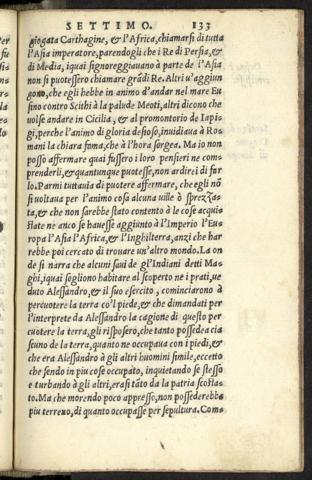 SETTIMO. 133
giogata Carthagine, & l'Africa, chiamarsi di tutta
l'Asia imperatore, parendogli che i Re di Persia, &
di Media, iquai signoreggiauano à parte de l'Asia
non si puotessero chiamare grãdi Re. Altri u'aggiun
gono, che egli hebbe in animo d'andar nel mare Eu
sino contro Scithi à la palude Meoti, altri dicono che
volse andare in Cicilia, & al promontorio de Iapi=
gi, perche l'animo di gloria desioso, inuidiaua à Ro=
mani la chiara fama, che à l'hora sorgea. Ma io non
posso affermare quai fussero i loro pensieri ne com=
prenderli, & quantunque puotesse, non ardirei di far
lo. Parmi tuttauia di puotere affermare, che egli nõ
si voltaua per l'animo cosa alcuna uille ò sprezza=
ta, & che non sarebbe stato contento à le cose acqui=
state ne anco se hauesse aggiunto à l'Imperio l'Eu=
ropa l'Asia l'Africa, & l'Inghilterra, anzi che har
rebbe poi cercato di trouare un'altro mondo. La on
de si narra che alcuni saui de gl'Indiani detti Ma=
ghi, iquai sogliono habitar al scoperto ne i prati, ue
duto Alessandro, & il suo esercito, cominciarono à
percuotere la terra co'l piede, & che dimandati per
l'interprete da Alessandro la cagione di questo per
cuotere la terra, gli risposero, che tanto possedea cia
scuno de la terra, quanto ne occupaua con i piedi, &
che era Alessandro à gli altri huomini simile, eccetto
che sendo in piu cose occupato, inquietando se stesso
e turbando à gli altri, era stàto da la patria scostà=
to. Ma che morendo poco appresso, non possederebbe
piu terreno, di quanto occupasse per sepultura. Com=